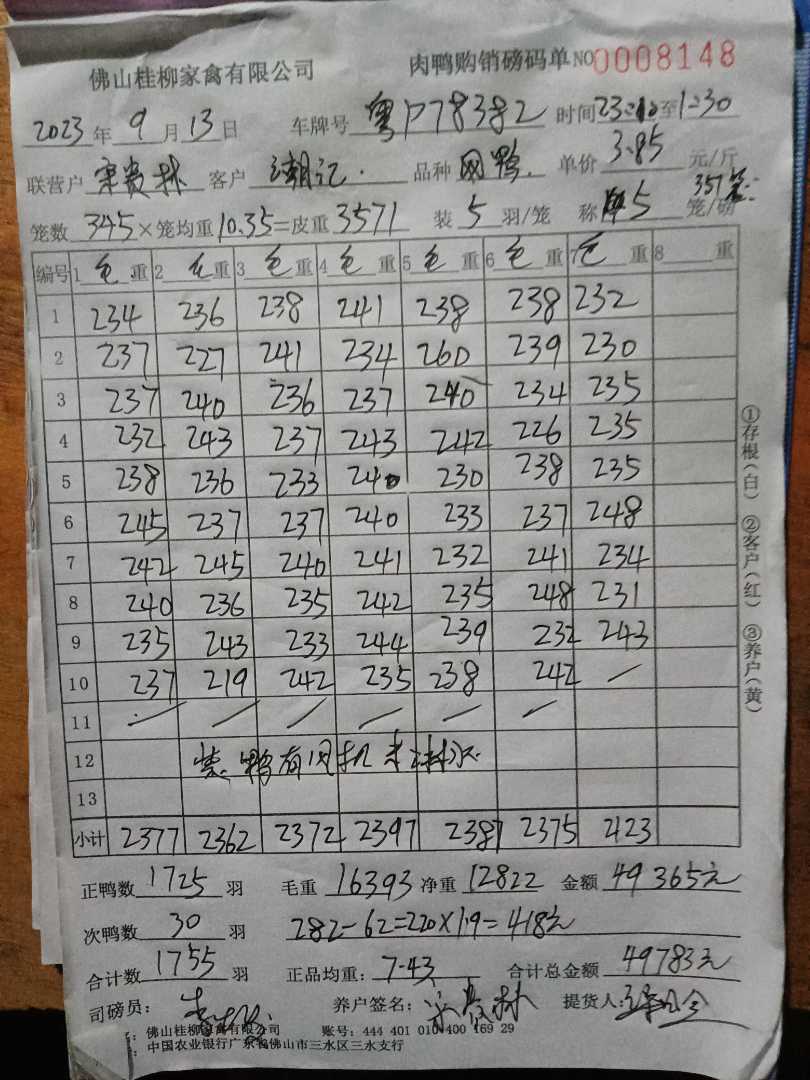 佛山桂柳家禽有限公司 肉鸭购销磅码单 NO0008148
2023年9月13日 车牌号 粤P78382 时间23:10至1:30
联营户 宋贵林 客户 潮记. 品种 网鸭. 单价 3.85 元/斤
357笼
笼数 345×笼均重10.35=皮重3571 装5羽/笼 称5笼/磅
编号 1毛重 2毛重 3毛重 4毛重 5毛重 6毛重 7毛重 8 重
1 234 236 238 241 238 238 232
2 237 227 241 234 260 239 230
3 237 240 236 237 240 234 235
4 232 243 237 243 242 226 235
5 238 236 233 240 230 238 235
6 245 237 237 240 233 237 248
7 242 245 240 241 232 241 234
8 240 236 235 242 235 248 231
9 235 243 233 244 239 232 243
10 237 219 242 235 238 242 —
11
12 装鸭有风机
13
小计 2377 2362 2372 2397 2387 2375 2123
正鸭数 1725 羽 毛重 16393 净重 12822 金额 49365元
次鸭数 30 羽 282-62=220×1.9=418元
合计数 1755 羽 正品均重: 7.43 合计总金额 49783元
司磅员: 养户签名: 宋贵林 提货人:
: 佛山桂柳家禽有限公司 账号: 444 401 010 400 169 29
: 中国农业银行广东省佛山市三水区三水支行
①存根(白) ②客户(红) ③养户(黄)